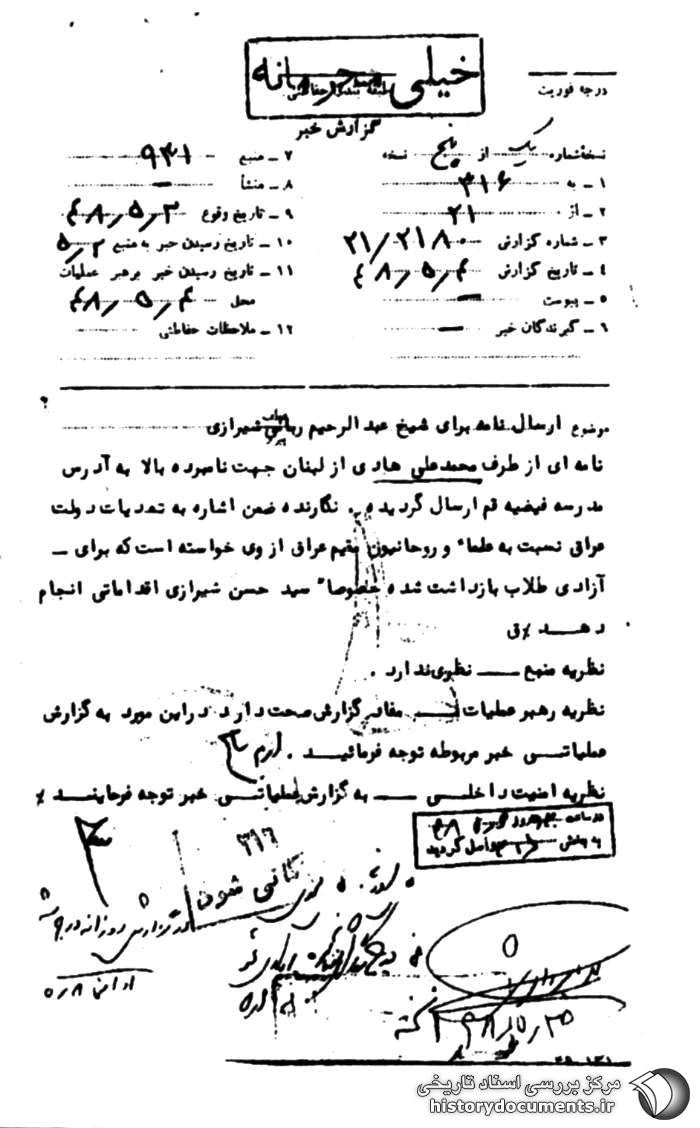 خیلی محرمانه
طبقه بندی حفاظتی
درجه فوریت
گزارش خبر
نسخه شماره یک از پنج نسخه
۱ - به ۳۱۶
۲ - از ۲۱
۳ - شماره گزارش ۲۱/۲۱۸۰
۴ - تاریخ گزارش ۴۸٫۵٫۴
۵ - پیوست —
۶ - گیرندگان خبر —
۷ - منبع ۹۴۱
۸ - منشأ —
۹ - تاریخ وقوع ۴۸٫۵٫۳
۱۰ - تاریخ رسیدن خبر به منبع ۵٫۲
۱۱ - تاریخ رسیدن خبر برهبر عملیات
محل ۴۸٫۵٫۴
۱۲ - ملاحظات حفاظتی
موضوع ارسال نامه برای شیخ عبدالرحیم ربانی شیرازی
نامه ای از طرف محمدعلی هادی از لبنان جهت نامبرده بالا به آدرس
مدرسه فیضیه قم ارسال گردیده . نگارنده ضمن اشاره به تعدیات دولت
عراق نسبت به علماء و روحانیون مقیم عراق از وی خواسته است که برای -
آزادی طلاب بازداشت شده خصوصاً سید حسن شیرازی اقداماتی انجام
دهد
نظریه منبع — نظری ندارد .
نظریه رهبر عملیات — مفاد گزارش صحت دارد در این مورد به گزارش
عملیاتی خبر مربوطه توجه فرمائید .
نظریه امنیت داخلی — به گزارش عملیاتی خبر توجه فرمایند
به بخش ۳۱۶ واصل گردید
۳۱۶
گزارش روزانه درج
مرکز بررسی اسناد تاریخی
historydocuments.ir